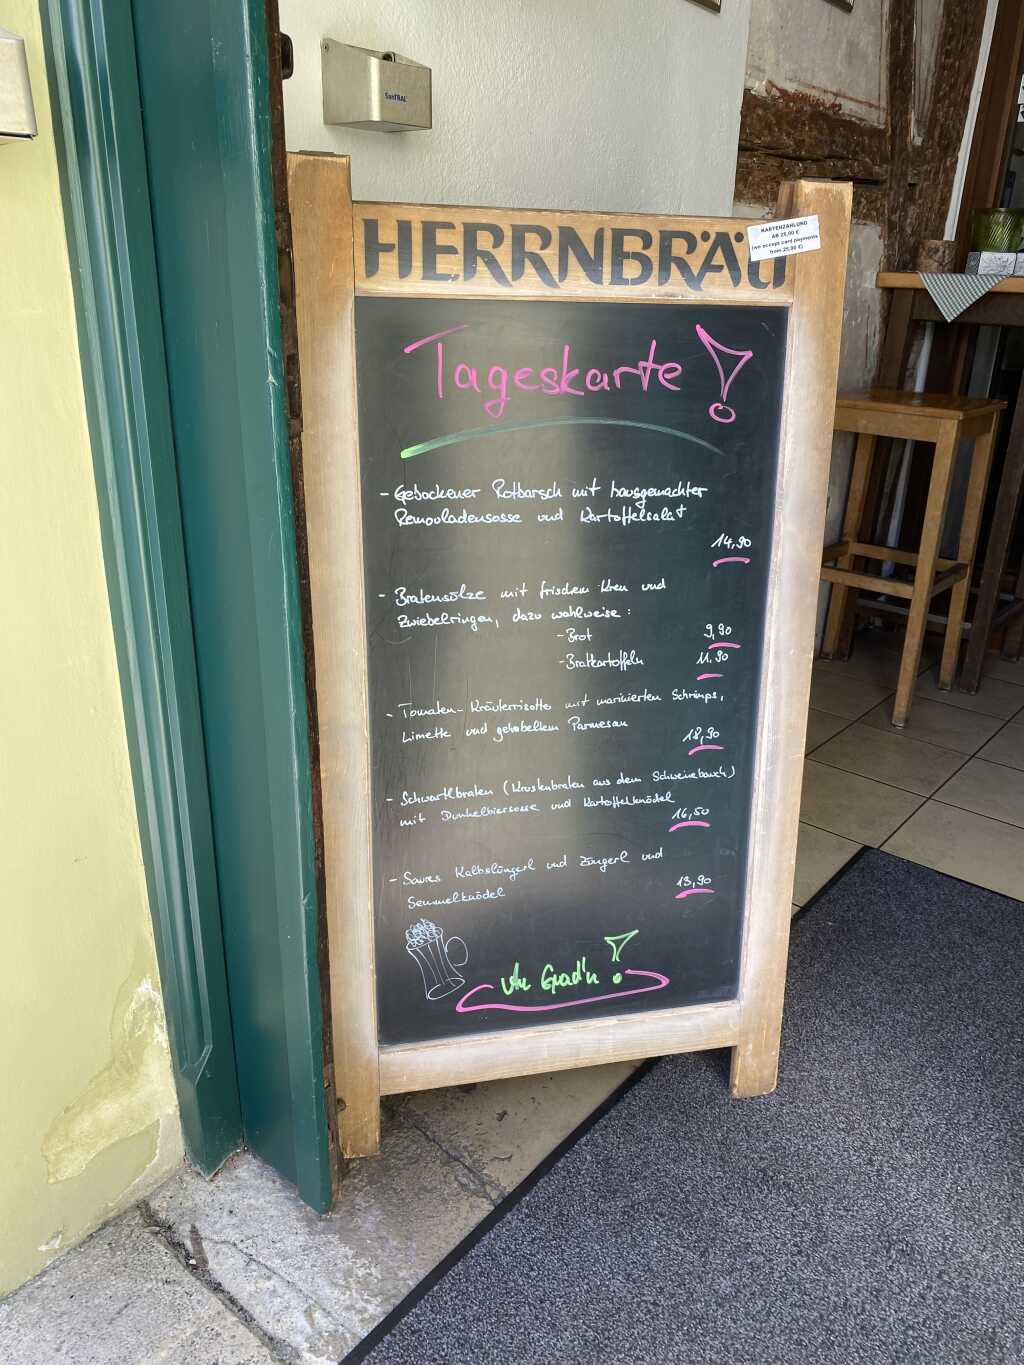 SanTRAL
HERRNBRÄU
KARTENZAHLUNG
AB 25,00 €
(we accept card payments
from 25,00 €)
Tageskarte !
- Gebackener Rotbarsch mit hausgemachter
Remouladensosse und Kartoffelsalat
14,90
- Bratensülze mit frischem Kren und
Zwiebelringen, dazu wahlweise :
- Brot 9,90
- Bratkartoffeln 11,90
- Tomaten-Kräuterrisotto mit marinierten Schrimps,
Limette und gehobeltem Parmesan
18,90
- Schwartlbraten (Krustenbraten aus dem Schweinebauch)
mit Dunkelbiersosse und Kartoffelknödel
16,50
- Saures Kalbslüngerl und Züngerl und
Semmelknödel
13,90
An Guad'n !